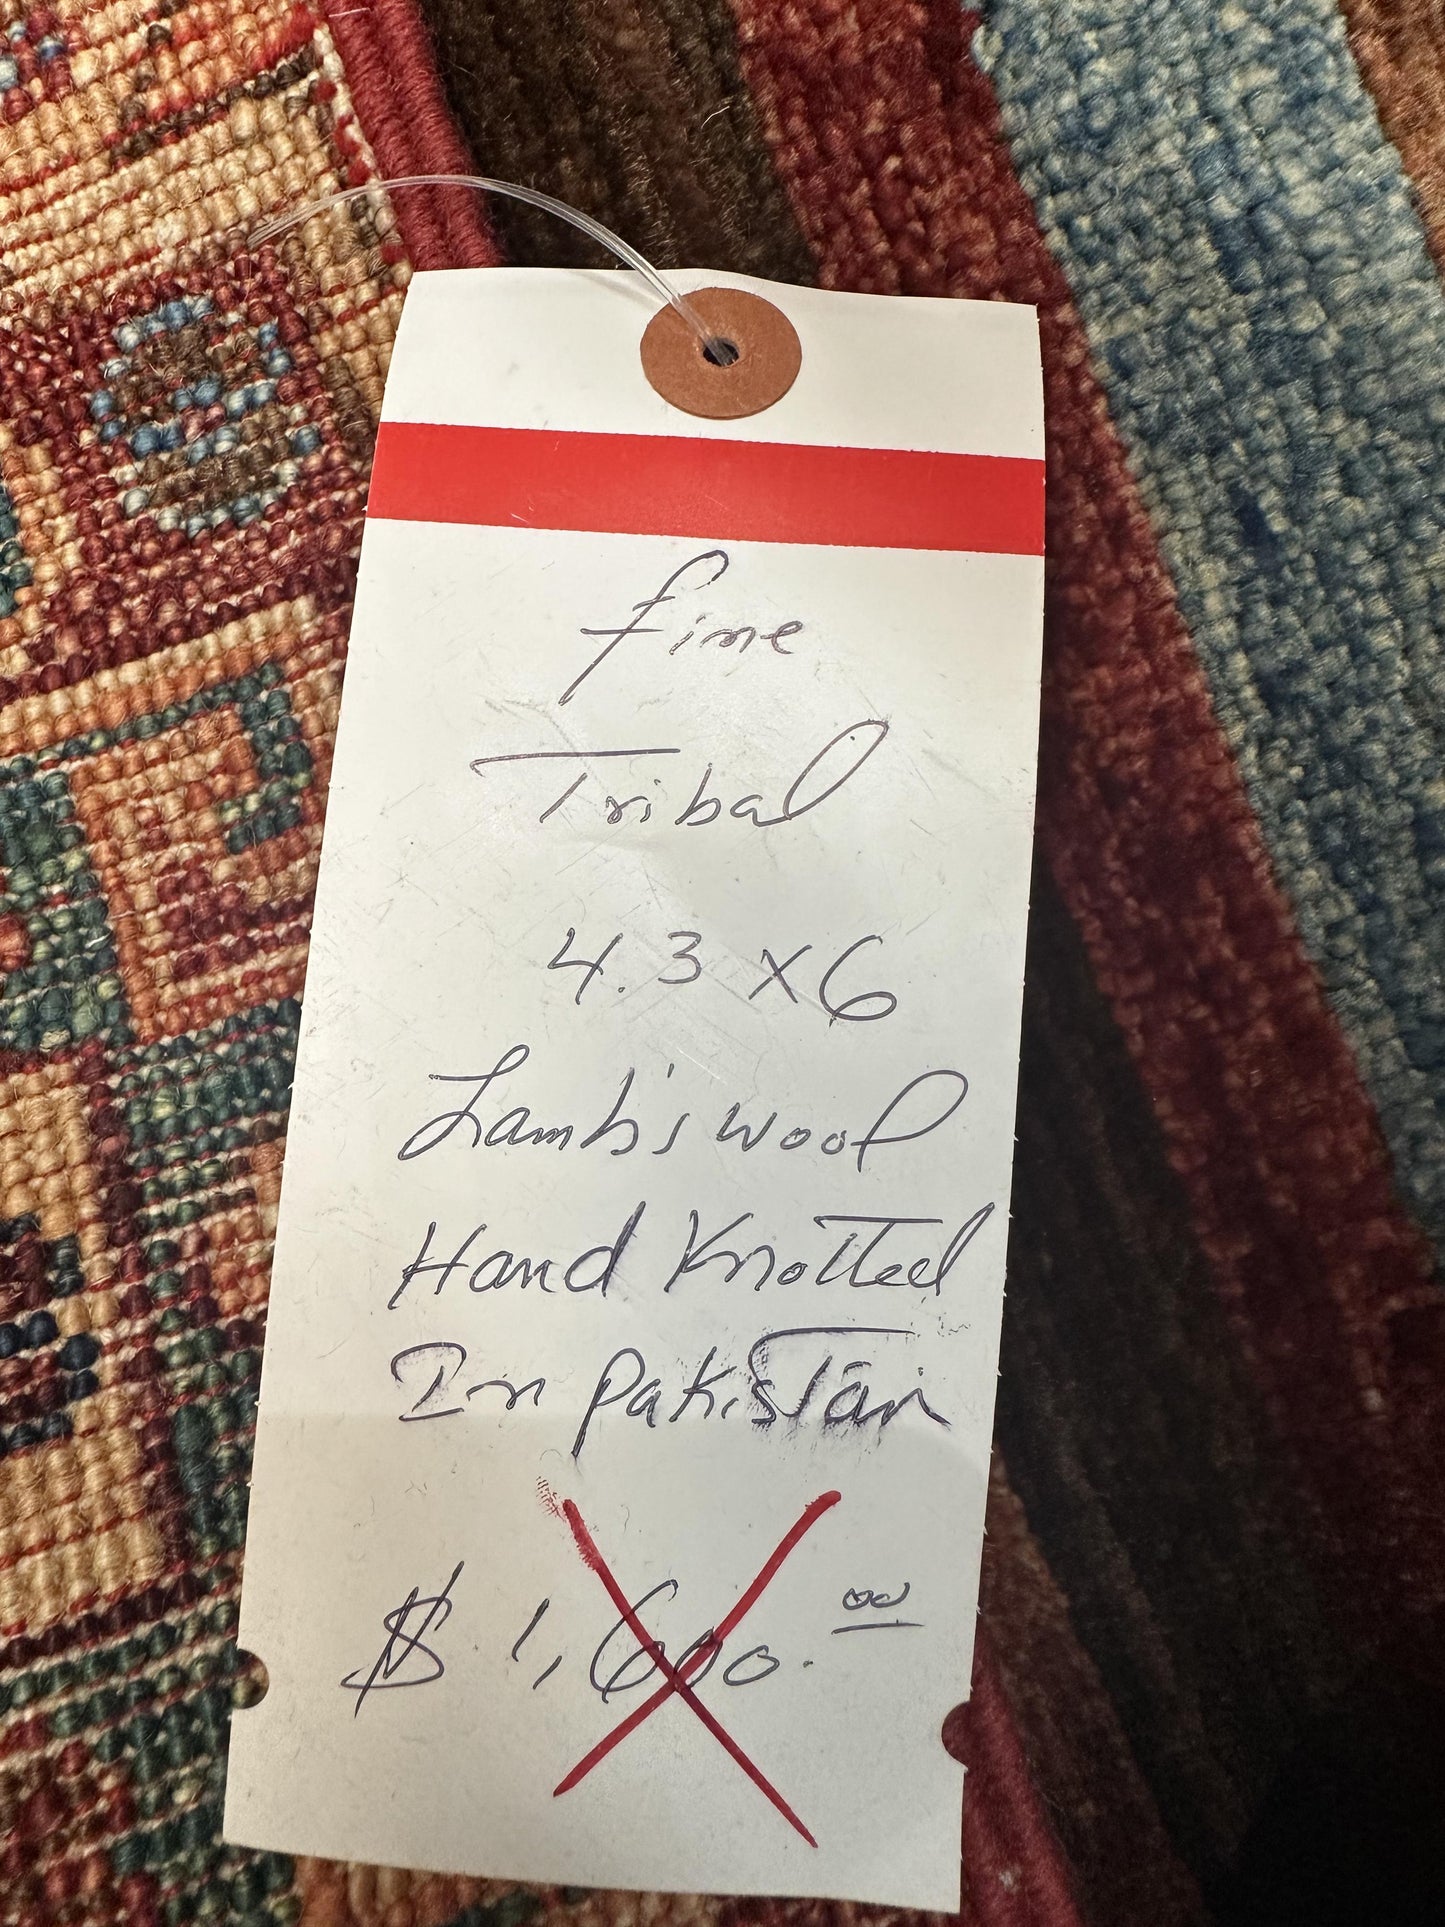 fine
Tribal
4.3 x 6
Lamb's wool
Hand Knotted
In pakistan
$ 1,600.00